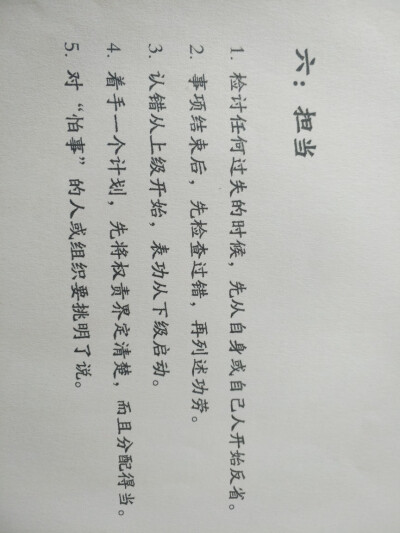 六：担当
1. 检讨任何过失的时候，先从自身或自己人开始反省。
2. 事项结束后，先检查过错，再列述功劳。
3. 认错从上级开始，表功从下级启动。
4. 着手一个计划，先将权责界定清楚，而且分配得当。
5. 对“怕事”的人或组织要挑明了说。